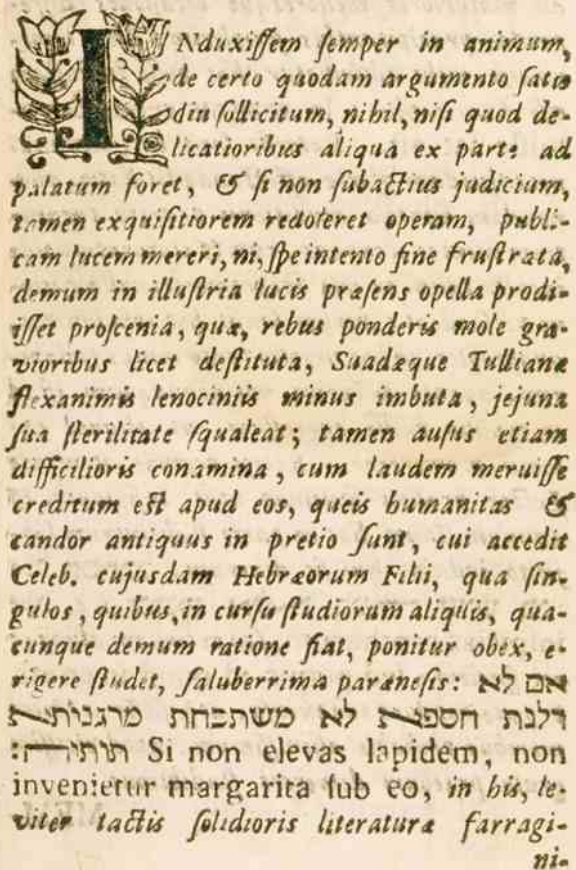 INduxissem semper in animum,
de certo quodam argumento satis
diu sollicitum, nihil, nisi quod de-
licatioribus aliqua ex parte ad
palatum foret, & si non subactius judicium,
tamen exquisitiorem redoleret operam, publi-
cam lucem mereri, ni, spe intento fine frustrata,
demum in illustria lucis præsens opella prodi-
isset proscenia, quæ, rebus ponderis mole gra-
vioribus licet destituta, Suadæque Tullianæ
flexanimis lenociniis minus imbuta, jejuna
sua sterilitate squaleat; tamen ausus etiam
difficilioris conamina, cum laudem meruisse
creditum est apud eos, queis humanitas &
candor antiquus in pretio sunt, cui accedit
Celeb. cujusdam Hebræorum Filii, qua sin-
gulos, quibus, in cursu studiorum aliquis, qua-
cunque demum ratione fiat, ponitur obex, e-
rigere studet, saluberrima parænesis: אם לא
דלות חספא לא משתכחת מרגניתא
תותיה: Si non elevas lapidem, non
invenietur margarita sub eo, in his, le-
viter tactis solidioris literaturæ farragi-
ni-